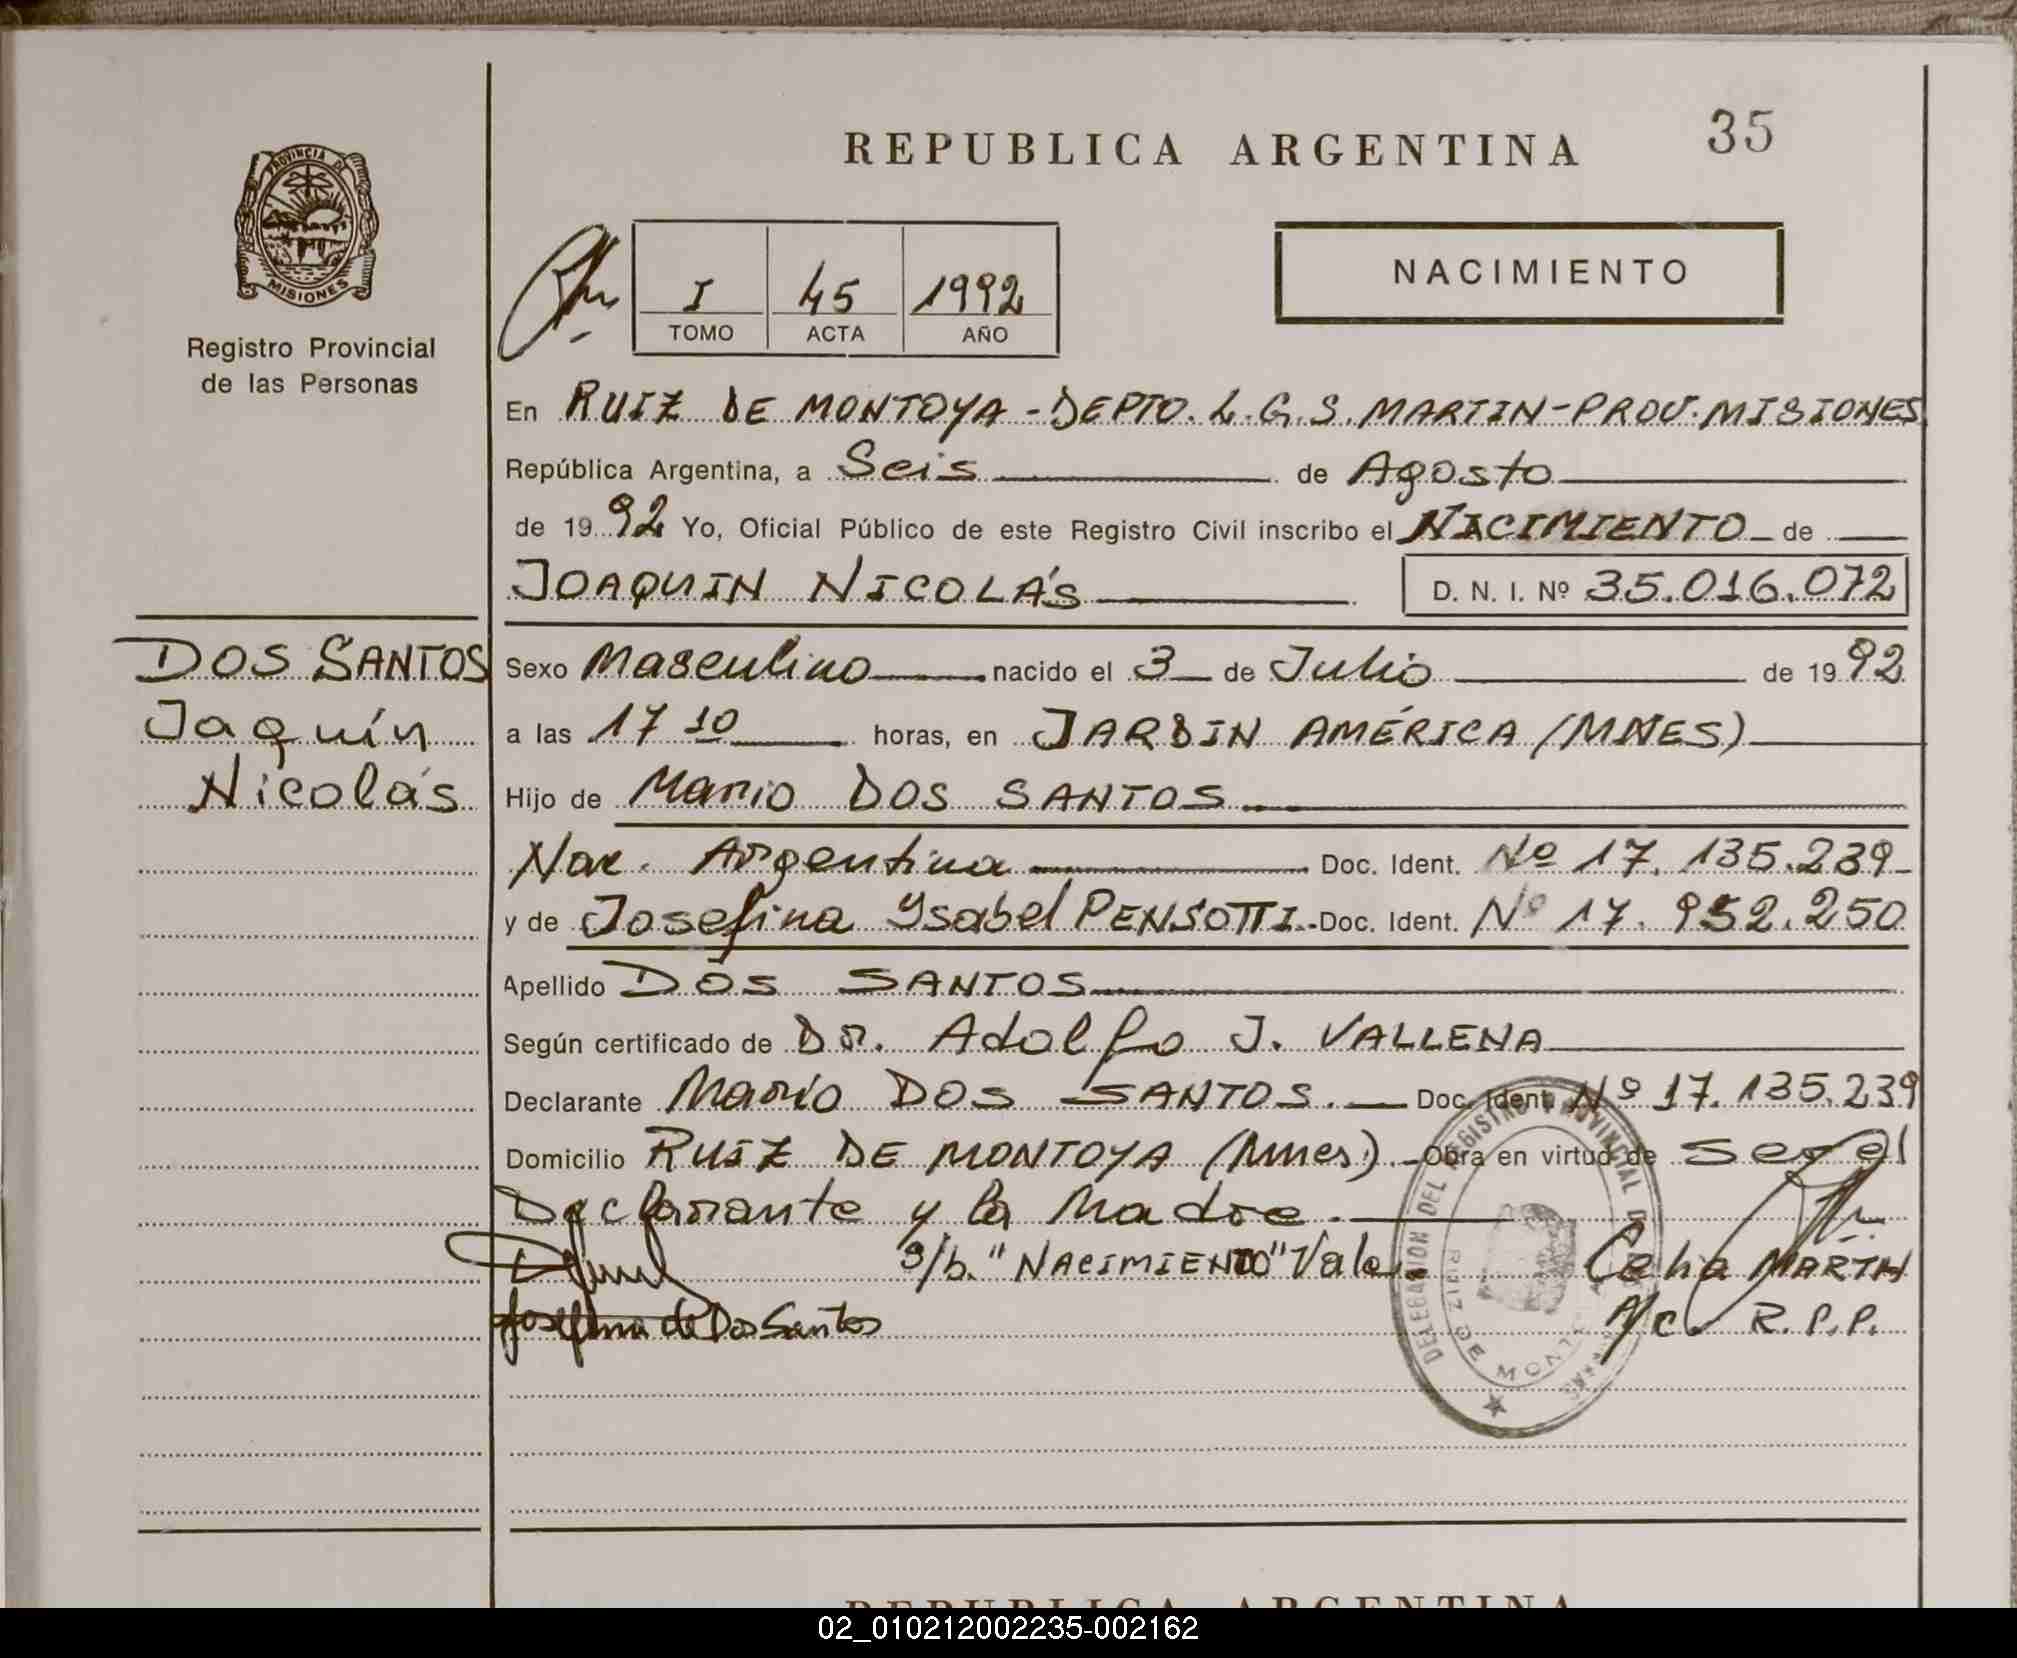 REPUBLICA ARGENTINA
35
PROVINCIA DE
MISIONES
Registro Provincial
de las Personas
I 45 1992
TOMO ACTA AÑO
NACIMIENTO
En RUIZ DE MONTOYA - DEPTO. L. G. S. MARTIN - PROV. MISIONES
República Argentina, a Seis de Agosto
de 1992 Yo, Oficial Público de este Registro Civil inscribo el NACIMIENTO de
JOAQUIN NICOLÁS D. N. I. Nº 35.016.072
DOS SANTOS
Jaquín
Nicolás
Sexo Masculino nacido el 3 de Julio de 1992
a las 17 10 horas, en JARDIN AMÉRICA (MNES)
Hijo de Mario DOS SANTOS
Nac. Argentina Doc. Ident. Nº 17.135.239
y de Josefina Ysabel PENSOTTI.- Doc. Ident. Nº 17.952.250
Apellido DOS SANTOS
Según certificado de Dr. Adolfo J. VALLENA
Declarante Mario DOS SANTOS. Doc. Ident. Nº 17.135.239
Domicilio RUIZ DE MONTOYA (Mnes). Obra en virtud de ser el
Declarante y la Madre.
s/b. "NACIMIENTO" Vale
Josefina de Dos Santos
Celia MARTIN
A/c. R.P.P.
DELEGACION DEL REGISTRO PROVINCIAL DE
RUIZ DE MONTOYA
REPUBLICA ARGENTINA
02_010212002235-002162